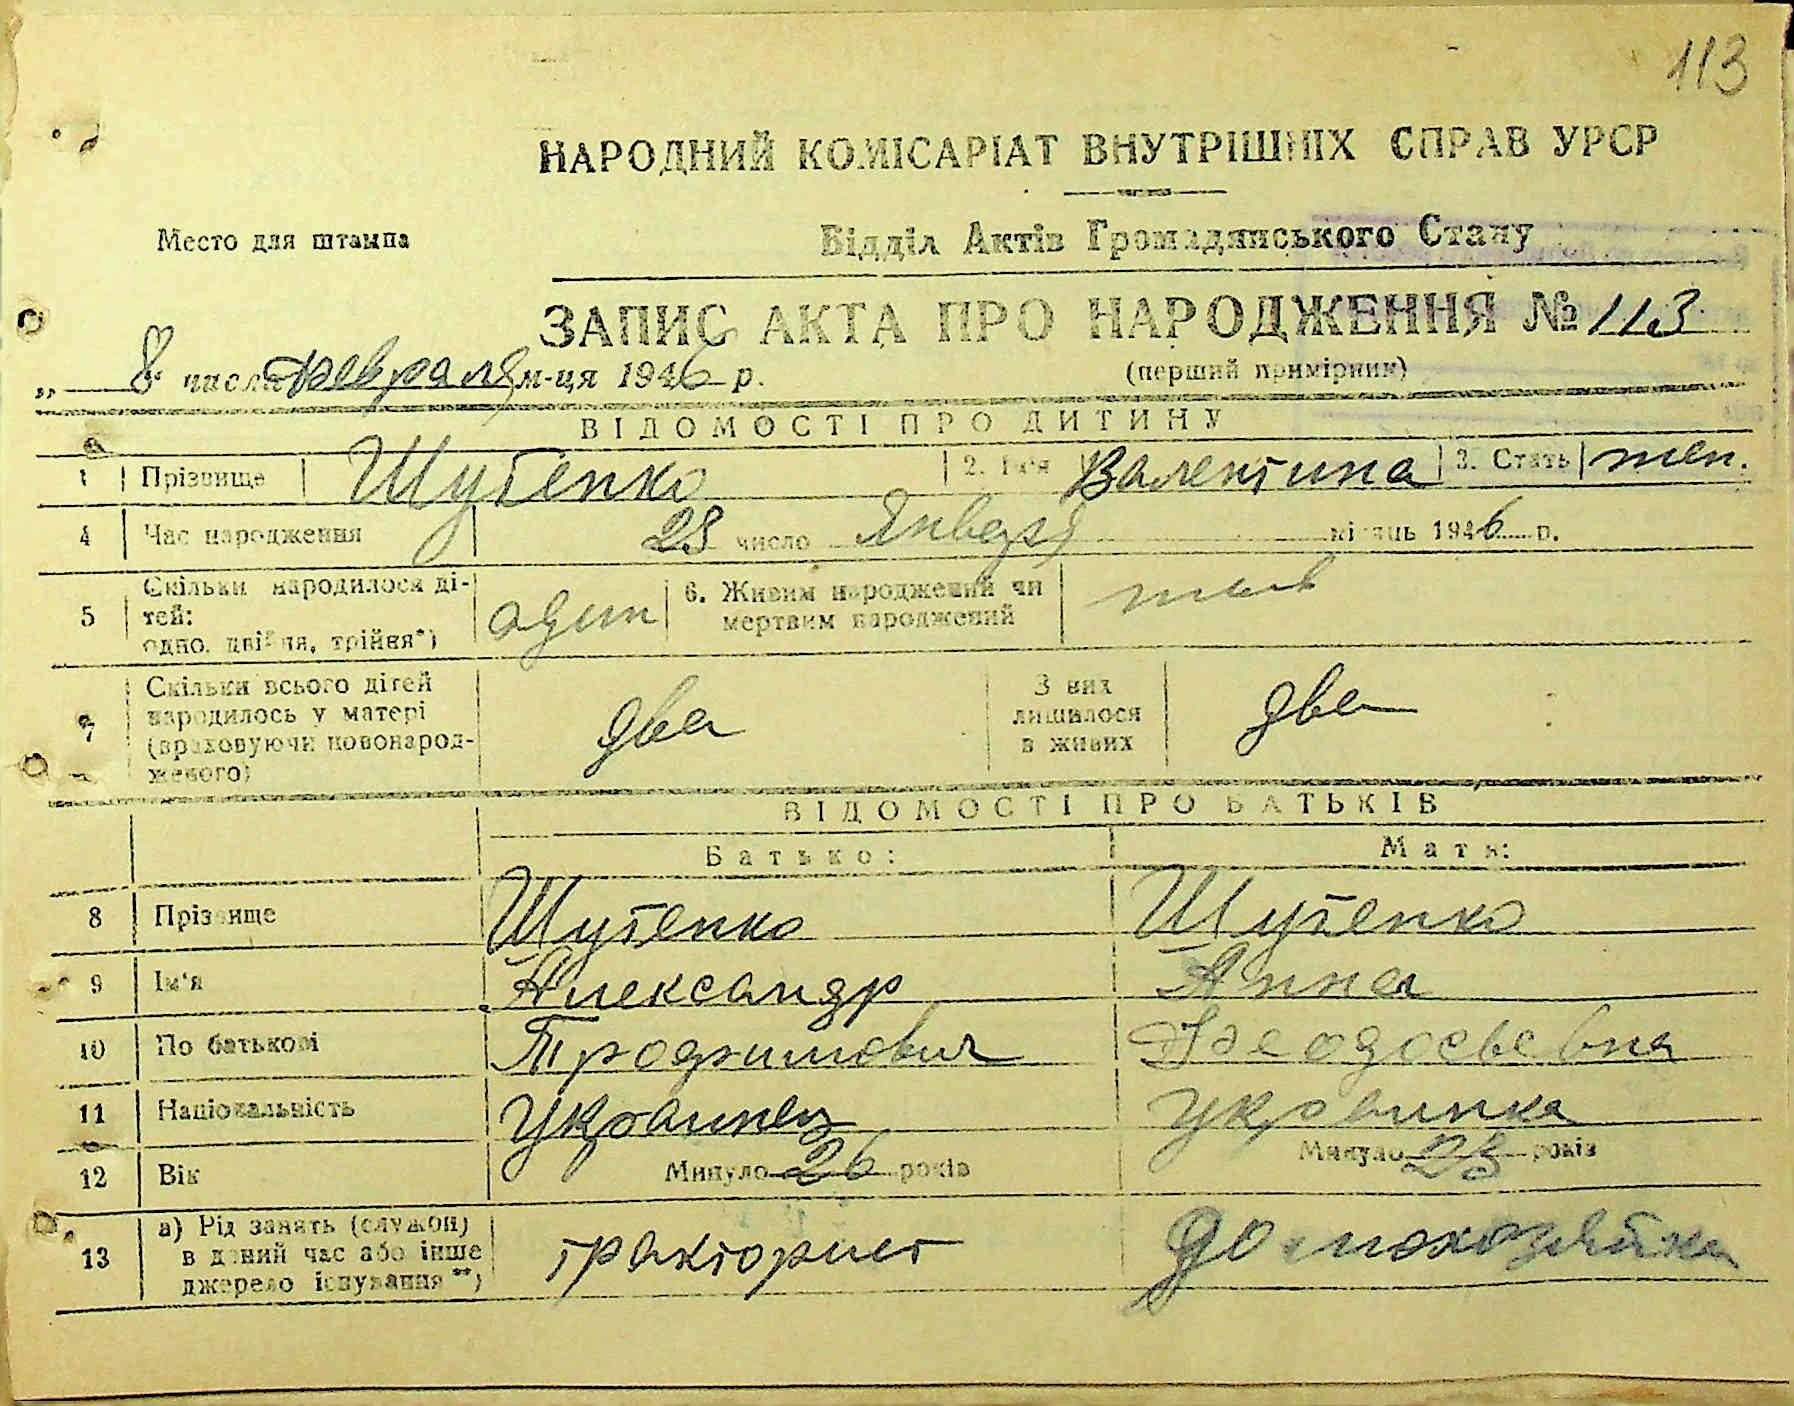 113
НАРОДНИЙ КОМІСАРІАТ ВНУТРІШНІХ СПРАВ УРСР
Место для штампа
Відділ Актів Громадянського Стану
ЗАПИС АКТА ПРО НАРОДЖЕННЯ № 113
„ 8 числа февраля м-ця 1946 р.
(перший примірник)
ВІДОМОСТІ ПРО ДИТИНУ
1 Прізвище Шутенко 2. Ім'я Валентина 3. Стать жен.
4 Час народження 28 число Января місяць 1946 р.
5 Скільки народилося ді-
тей:
одно, двійня, трійня*)
один
6. Живим народжений чи
мертвим народжений
жив
7 Скільки всього дітей
народилось у матері
(враховуючи новонарод-
женого)
два
З них
лишилося
в живих
два
ВІДОМОСТІ ПРО БАТЬКІВ
Батько: Мать:
8 Прізвище Шутенко Шутенко
9 Ім'я Александр Анна
10 По батькові Трофимович Феодосьевна
11 Національність Украинец Украинка
12 Вік Минуло 26 років Минуло 23 років
13 а) Рід занять (служби)
в даний час або інше
джерело існування**)
тракторист домохозяйка